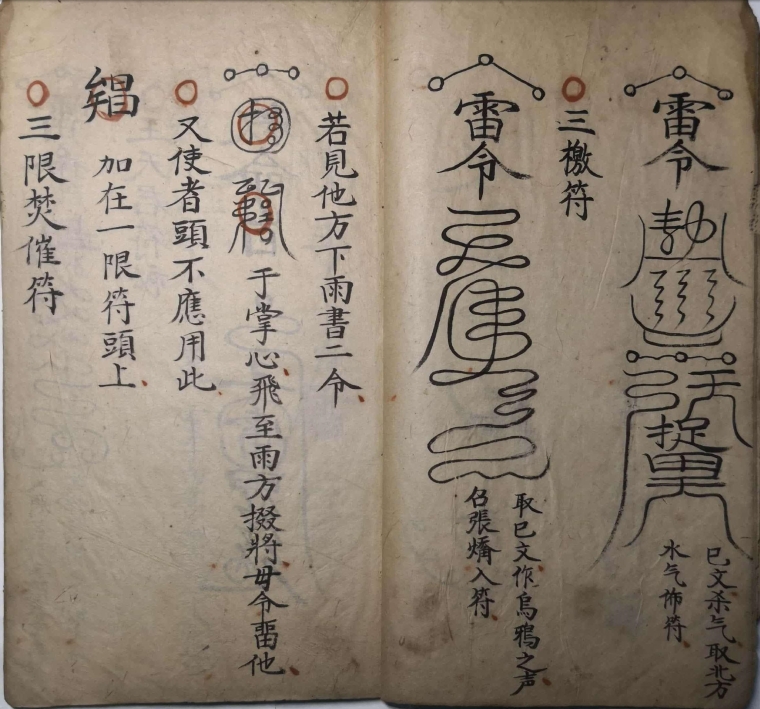 雷令
捉
巳文杀气取北方
水气怖符
三檄符
雷令
取巳文作烏鴉之声
召張入符
若見他方下雨書二令
于掌心飛至雨方掇將毋令畱他
又使者頭不應用此
加在一限符頭上
三限焚催符